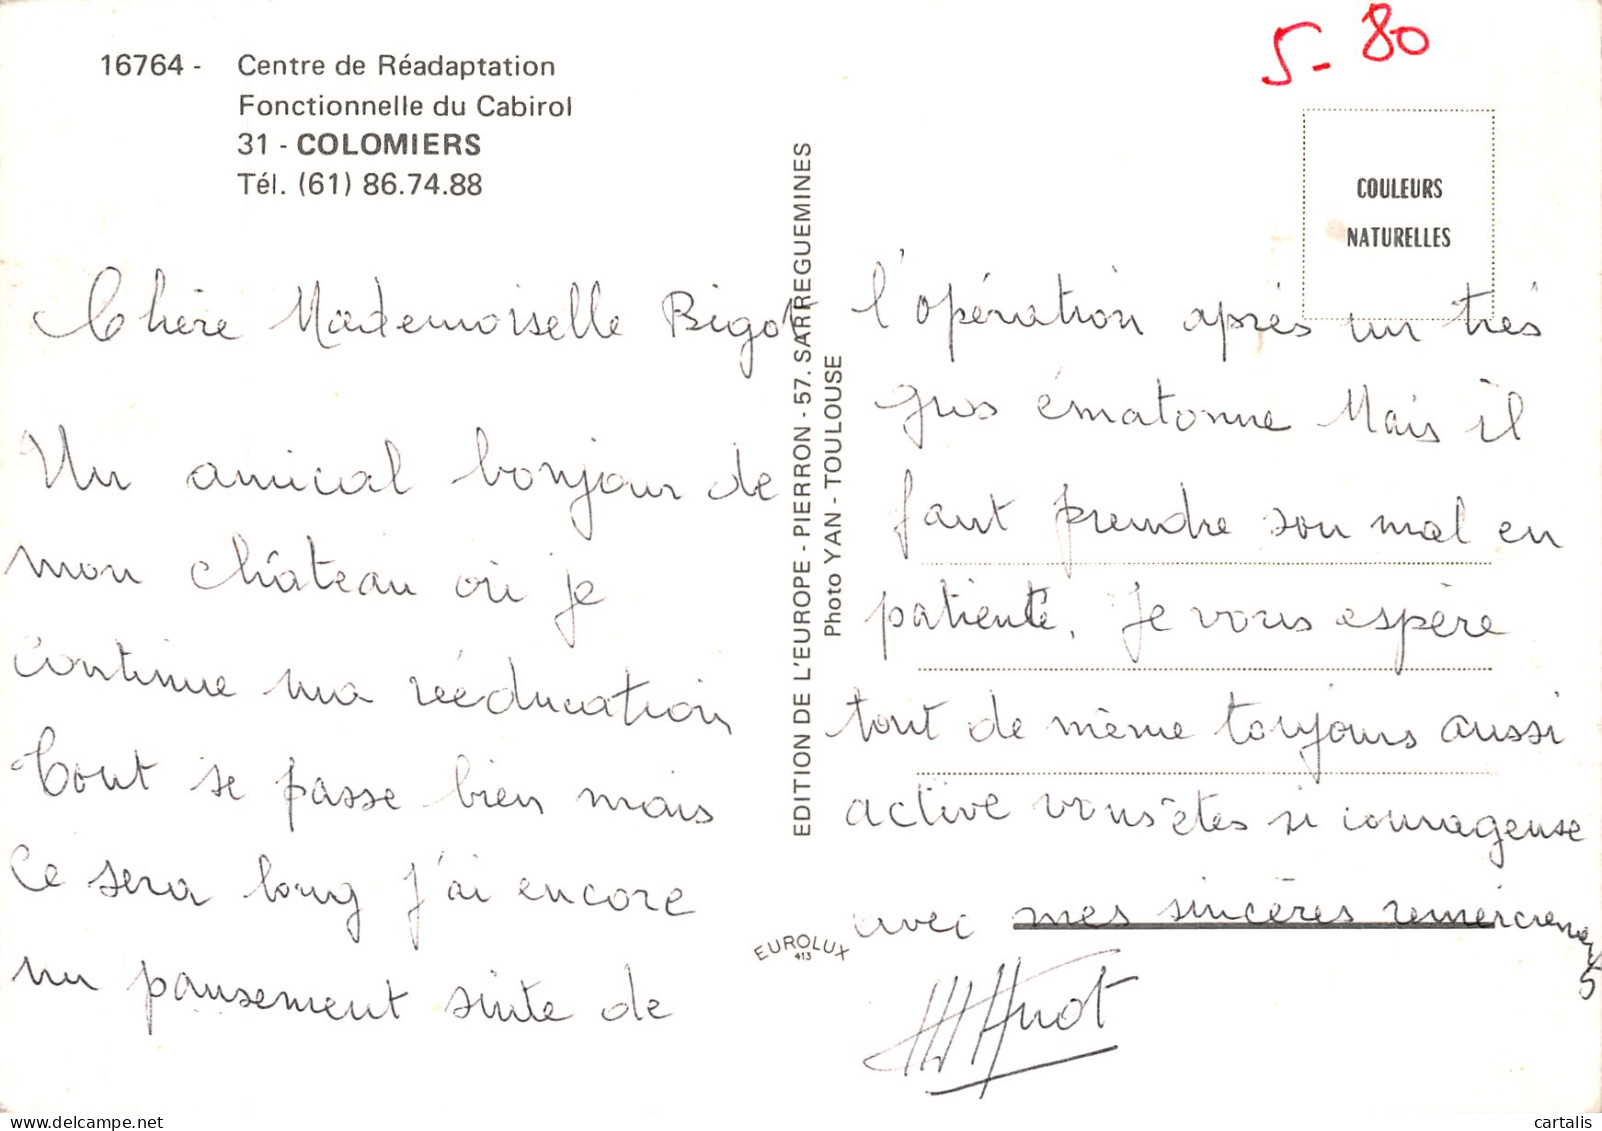 16764 - Centre de Réadaptation
Fonctionnelle du Cabirol
31 - COLOMIERS
Tél. (61) 86.74.88
5-80
COULEURS
NATURELLES
Chère Mademoiselle Bigot
Un amical bonjour de
mon château où je
continue ma rééducation
Tout se passe bien mais
Ce sera long j'ai encore
un pansement suite de
EDITION DE L'EUROPE - PIERRON - 57. SARREGUEMINES
Photo YAN - TOULOUSE
EUROLUX
413
l'opération après un très
gros ématonne Mais il
faut prendre son mal en
patiente. Je vous espère
tout de même toujours aussi
active vous êtes si courageuse
avec mes sincères
Huot
cartalis - delcampe.net